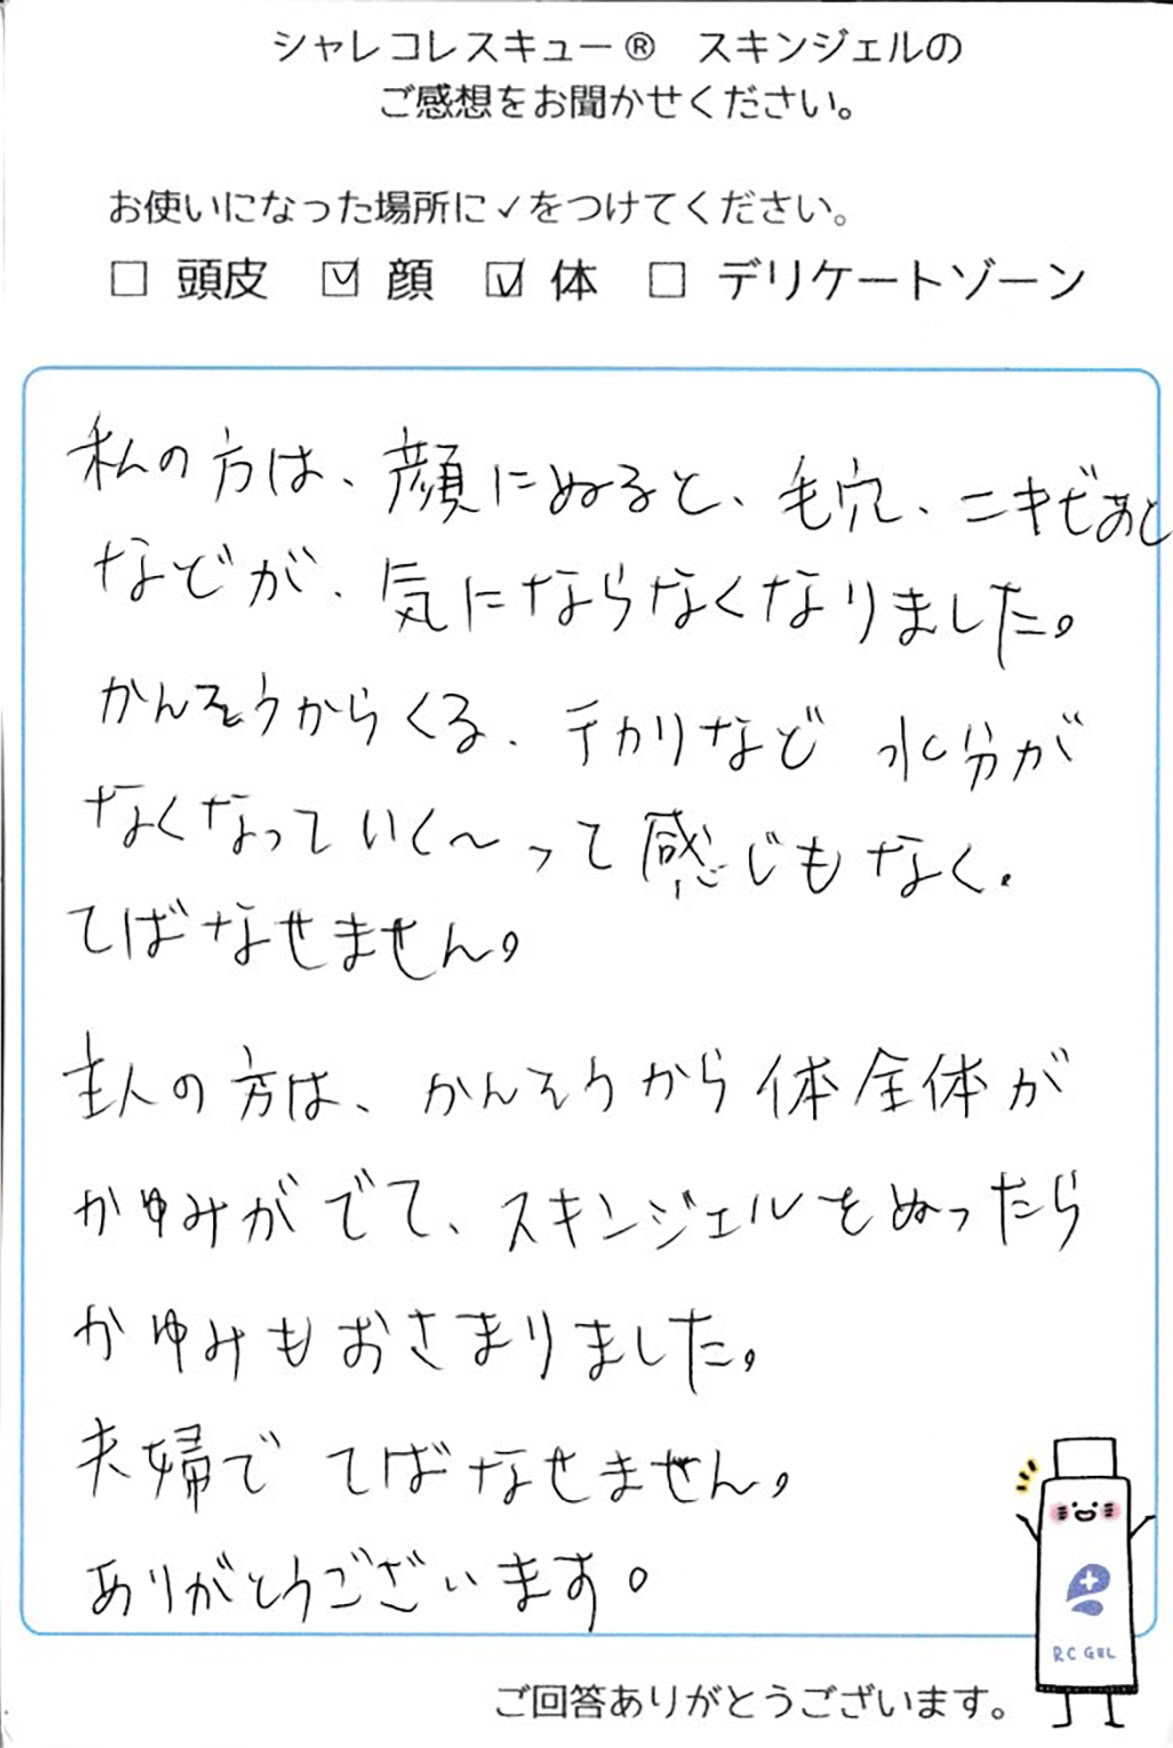 シャレコレスキュー® スキンジェルの
ご感想をお聞かせください。
お使いになった場所に✓をつけてください。
☐ 頭皮 ☑ 顔 ☑ 体 ☐ デリケートゾーン
私の方は、顔にぬると、毛穴、ニキビあと
などが、気にならなくなりました。
かんそうからくる、テカリなど 水分が
なくなっていく〜って感じもなく、
てばなせません。
主人の方は、かんそうから体全体が
かゆみがでて、スキンジェルをぬったら
かゆみもおさまりました。
夫婦で てばなせません。
ありがとうございます。
RC GEL
ご回答ありがとうございます。